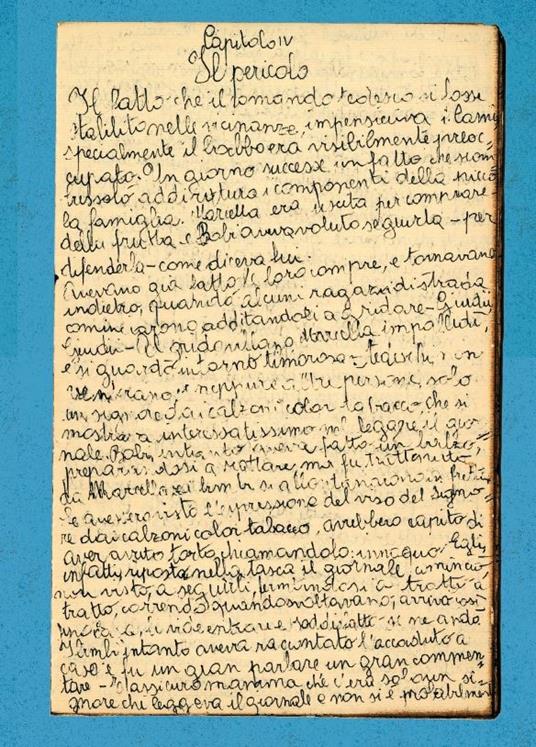 Capitolo IV
Il pericolo
Il fatto che il comando tedesco si fosse
stabilito nelle vicinanze, impensieriva i
specialmente il babbo era visibilmente preoc=
cupato. Un giorno successe un fatto che scom
bussolò addirittura i componenti della picco
la famiglia. Marcella era uscita per comprare
della frutta e Bobi aveva voluto seguirla - per
difenderla - come diceva lui.
Avevano già fatto le loro compre, e tornavano
indietro, quando alcuni ragazzi di strada
cominciarono additandoli a gridare - Giudii,
Giudii - Marcella impallidì,
e si guardò intorno timorosa - tedeschi non
ve n'erano, e neppure altre persone, solo
un signore dai calzoni color tabacco, che si
mostrava interessatissimo nel leggere il gior
nale. Bobi intanto aveva fatto un balzo,
preparandosi a lottare, ma fu trattenuto
da Marcella ed i bimbi si allontanarono in fretta
Se avessero visto l'espressione del viso del signo=
re dai calzoni color tabacco, avrebbero capito di
aver avuto torto, chiamandolo innocuo. Egli,
infatti, riposto nella tasca il giornale, cominciò
non visto, a seguirli, fermandosi a tratti a
tratto, correndo quando svoltavano, arrivò così
fino a li vide entrare e soddisfatto se ne andò.
I bimbi intanto aveva raccontato l'accaduto a
casa e fu un gran parlare un gran commen=
tare - rassicurò mamma che c'era solo un si=
gnore che leggeva il giornale e non si è probabilmente